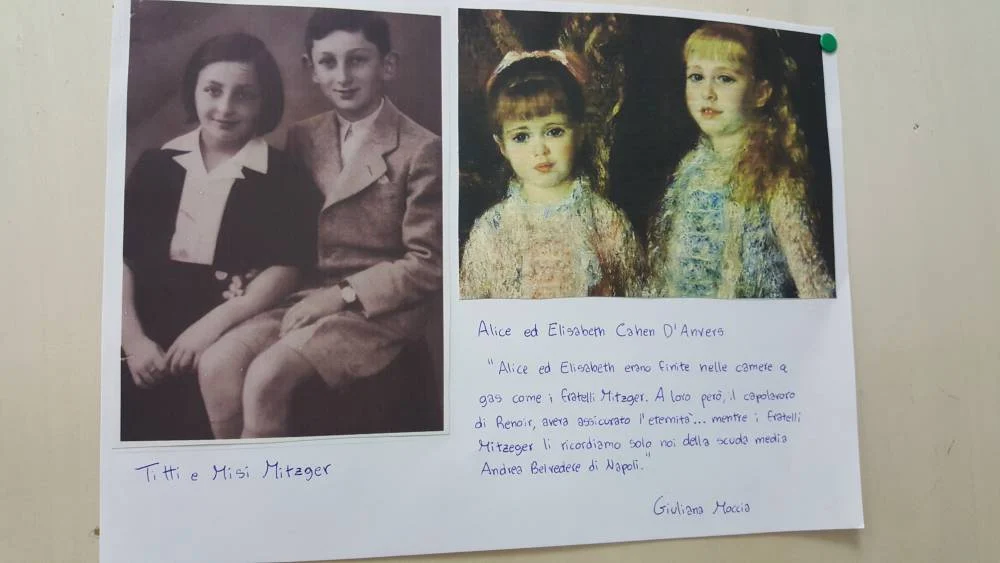 Titti e Misi Mitzger
Alice ed Elisabeth Cahen D'Anvers
"Alice ed Elisabeth erano finite nelle camere a
gas come i fratelli Mitzger. A loro però, il capolavoro
di Renoir, aveva assicurato l'eternità... mentre i fratelli
Mitzeger li ricordiamo solo noi della scuola media
Andrea Belvedere di Napoli."
Giuliana Moccia